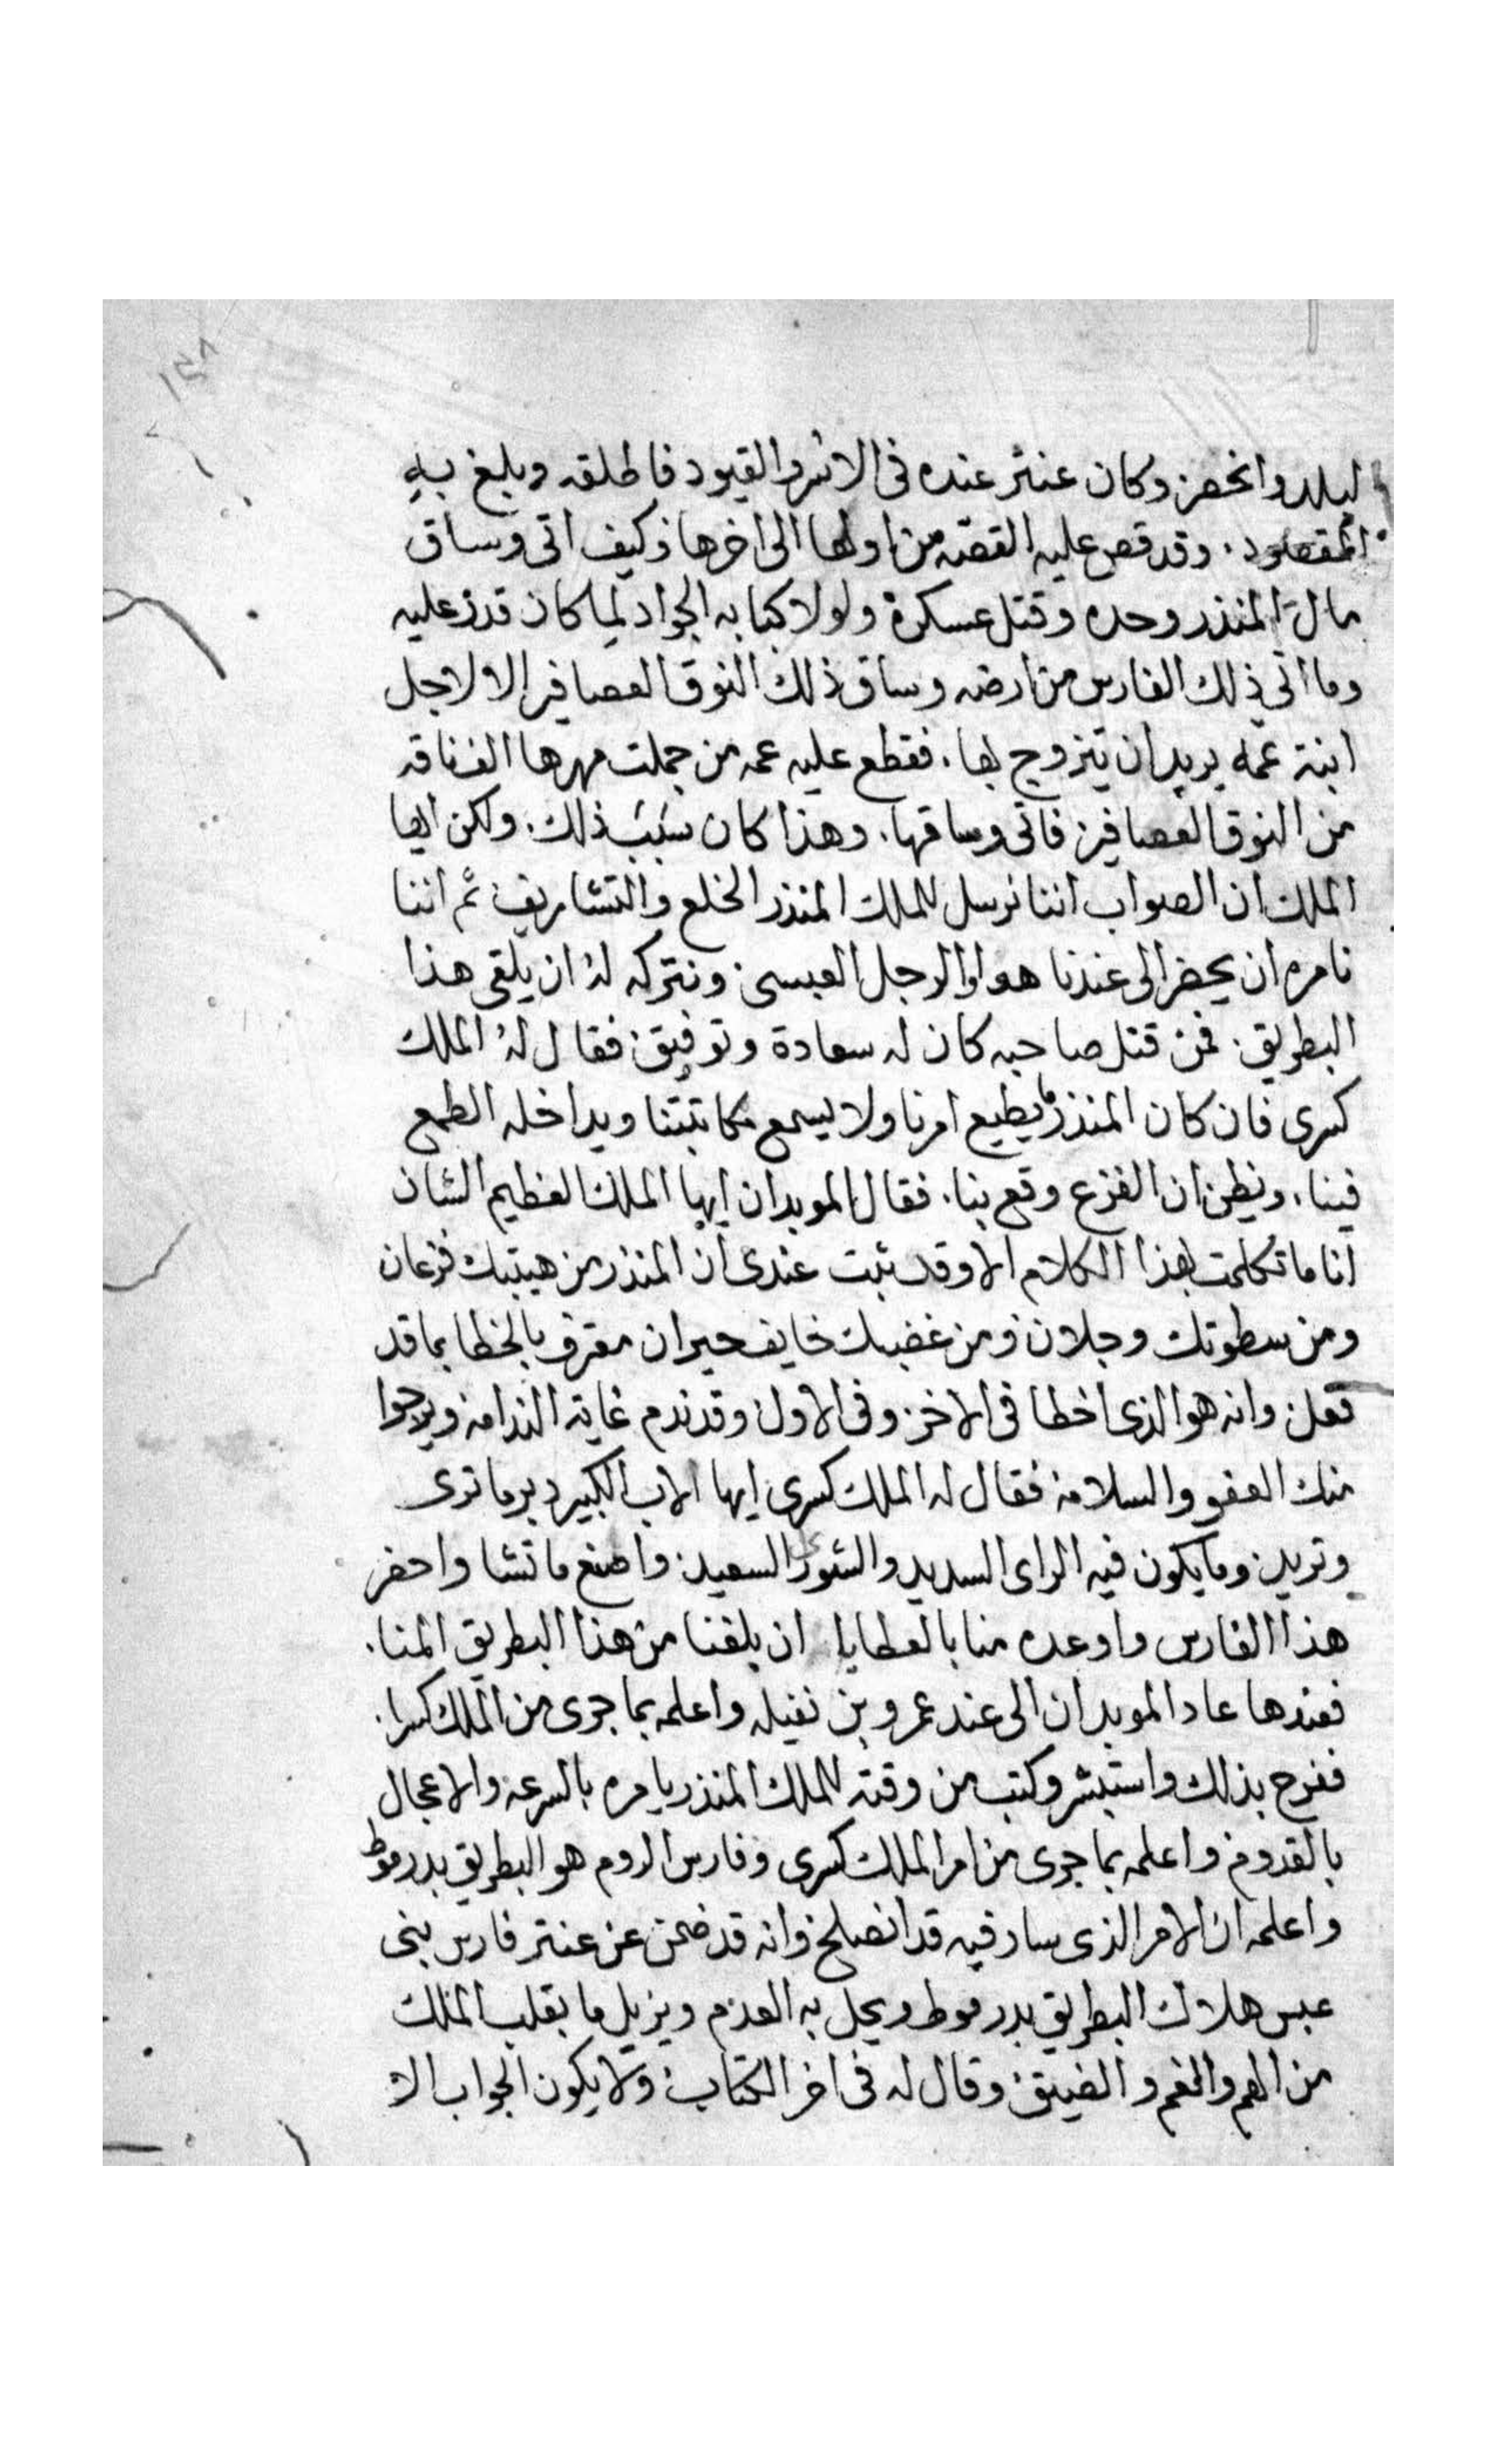 ١٥٨
لبلد وانحصر وكان عنتر عنده فى الاسر والقيود فاطلقه وبلغ به
المقصود . وقد قص عليه القصة من اولها الى اخرها وكيف اتى وساق
مال المنذر وحده وقتل عسكره ولولا كبا به الجواد لما كان قدر عليه
وما اتي ذلك الفارس من ارضه وساق ذلك النوق العصافير الا لاجل
ابنة عمه يريد ان يتزوج بها . فقطع عليه عمه من جملت مهرها الف ناقه
من النوق العصافير فاتى وساقها . وهذا كان سبب ذلك . ولكن ايها
الملك ان الصواب اننا نرسل للملك المنذر الخلع والتشاريف ثم اننا
نامره ان يحضر الى عندنا هو والرجل العبسى ونتركه لهُ ان يلقى هذا
البطريق . فمن قتل صاحبه كان له سعادة وتوفيق فقال لهُ الملك
كسرى فان كان المنذر ما يطيع امرنا ولا يسمع مكاتبتنا ويداخله الطمع
فينا . ويظن ان الفزع وقع بنا . فقال الموبدان ايها الملك العظيم الشان
انا ما تكلمت بهذا الكلام الا وقد ثبت عندى أن المنذر من هيبتك فزعان
ومن سطوتك وجلان ومن غضبك خايف حيران معترف بالخطا بما قد
فعل وانه هو الذى اخطا فى الاخر وفى الاول وقد ندم غاية الندامه ويرجوا
منك العفو والسلامه فقال له الملك كسرى ايها الاب الكبير دبر ما ترى
وتريد وما يكون فيه الراى السديد والشور السعيد واصنع ما تشا واحضر
هذا الفارس واوعده منا بالعطايا ان بلغنا من هذا البطريق المنا .
فعندها عاد الموبدان الى عند عمرو بن نفيله واعلمه بما جرى من الملك كسرا .
ففرح بذلك واستبشر وكتب من وقته للملك المنذر يامره بالسرعه والاعجال
بالقدوم واعلمه بما جرى من امر الملك كسرى وفارس الروم هو البطريق بدرموط
واعلمه ان الامر الذى سار فيه قد انصلح وانه قد ضمن عن عنتر فارس بنى
عبس هلاك البطريق بدرموط ويحل به العدم ويزيل ما بقلب الملك
من الهم والغم والضيق وقال له فى اخر الكتاب ولا يكون الجواب الا